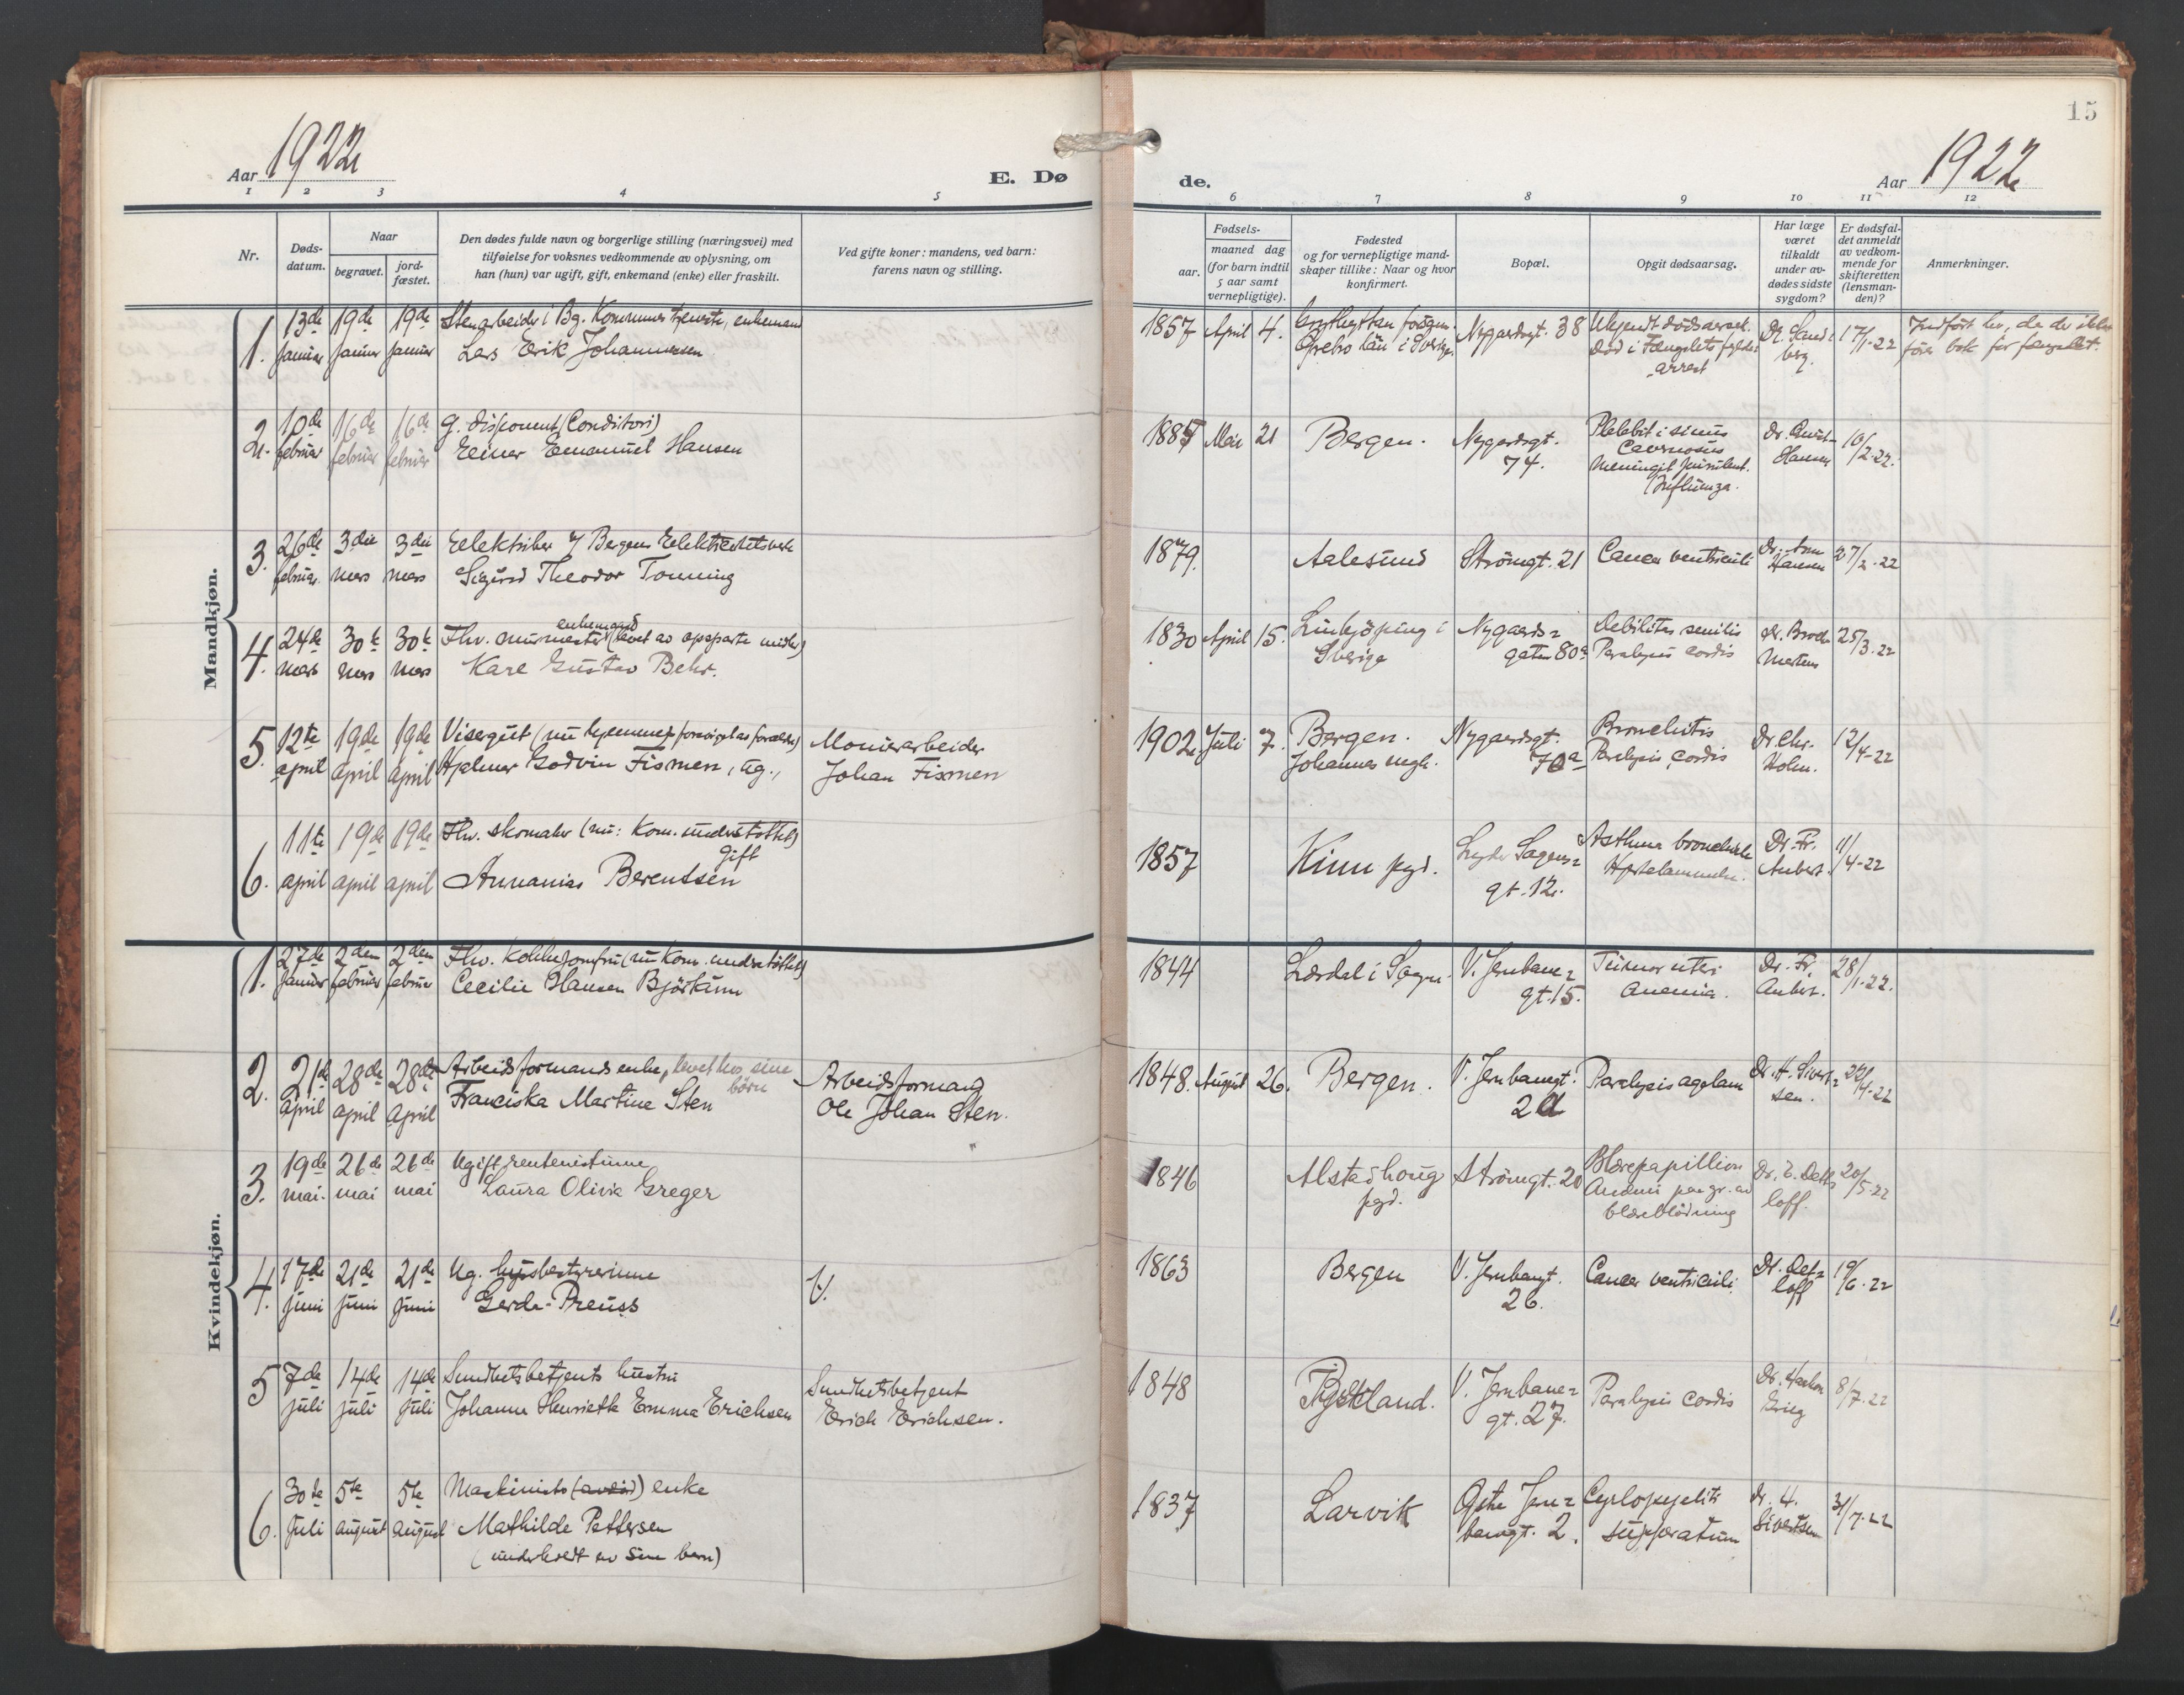 15
Aar 1922
E. Dø
de.
Aar 1922
1 2 3 4 5
6 7 8 9 10 11 12
Nr.
Døds-
datum.
Naar
begravet.
jord-
fæstet.
Den dødes fulde navn og borgerlige stilling (næringsvei) med
tilføielse for voksnes vedkommende av oplysning, om
han (hun) var ugift, gift, enkemand (enke) eller fraskilt.
Ved gifte koner: mandens, ved barn:
farens navn og stilling.
Fødsels-
aar.
maaned dag
(for barn indtil
5 aar samt
vernepligtige).
Fødested
og for vernepligtige mand-
skaper tillike: Naar og hvor
konfirmert.
Bopæl.
Opgit dødsaarsag.
Har læge
været
tilkaldt
under av-
dødes sidste
sygdom?
Er dødsfal-
det anmeldt
av vedkom-
mende for
skifteretten
(lensman-
den)?
Anmerkninger.
Mandkjøn.
1. 13de januar 19de januar 19de januar
Stenarbeider i Bg. Kommunes tjeneste, enkemand
Lars Erik Johannesen
1857 April 4.
Örebro Län i Sverige
Nygaardsgt. 38
Ukjendt dødsaarsak.
Død i Fængslets
arrest
17/1-22
2. 10de februar 16de februar 16de februar
g. disponent (Conditori)
Einar Emanuel Hansen
1885 Mai 21
Bergen.
Nygaardsgt.
74.
Flebit i sinus
Cavernosus
Meningit purulent.
Influenza.
10/2-22.
3. 26de februar 3die mars 3die mars
Elektriker v/ Bergens Elektricitetsverk
Sigurd Theodor Tonning
1879.
Aalesund
Strömgt. 21
Cancer ventriculi
27/2-22
4. 24de mars 30te mars 30te mars
enkemand
Fhv. murmester (levet av opsparte midler)
Karl Gustav Behr.
1830 April 15.
Linkjöping i
Sverige
Nygaards=
gaten 80a
Debilitas senilis
Paralysis cordis
Dr. Broch
Martens
25/3-22
5. 12te april 19de april 19de april
Visergut (nu hjemme, forsörget av forældre)
Hjalmar Godvin Fismen, ug.,
Johan Fismen
1902 Juli 7.
Bergen.
Johannes megh.
Nygaardsgt.
70a
Bronchitis
Paralysis cordis
Dr. Chr.
Holm.
12/4-22
6. 11te april 19de april 19de april
Fhv. skomaker (nu: Kom. understöttet)
gift
Annanias Berentsen
1857
Kinn pgd.
Lyder Sagens=
gt. 12.
Asthma bronchiale
Dr. Fr.
Aubert.
11/4-22
Kvindekjøn.
1. 27de januar 2den februar 2den februar
Fhv. Kokkejomfru (nu Kom. understöttet)
Cecilie Hansen Björkum
1844
Lærdal i Sogn.
V. Jernbane=
gt. 15.
Tumor uteri
Anemia.
Dr. Fr.
Aubert.
28/1-22.
2. 21de april 28de april 28de april
Arbeidsformands enke, levet hos sine
börn
Franciska Martine Sten
Arbeidsformand
Ole Johan Sten.
1848. August 26.
Bergen.
V. Jernbanegt.
2a
Paralysis agitans
Dr. H. Sivert=
sen.
22/4-22
3. 19de mai. 26de mai 26de mai
Ugift rentenistinne
Laura Olivia Greger
1846
Alstadhoug
pgd.
Strömgt. 20
Blærepapillion
Anemi paa gr. av
blæreblödning
Dr. E. Dett=
loff.
20/5-22
4. 17de juni 21de juni 21de juni
Ug. husbestyrerinne
Gerda Preuss
1863
Bergen
V. Jernbangt.
26.
Cancer ventriculi
Dr. Det=
loff
19/6-22
5 7de juli 14de juli 14de juli
Sundhetsbetjents hustru
Johanne Henriette Emma Erichsen
Sundhetsbetjent
Erich Erichsen.
1848
V. Jernbane=
gt. 27.
Paralysis cordis
Dr. Haakon
Grieg
8/7-22
6. 30te juli 5te august 5te august
Maskinists (avdöd) enke
Mathilde Pettersen
(underholdt av sine barn)
1837
Larvik
Østre Jern=
banegt. 2.
Cystopyelitis
suppuratum
Dr. H.
Sivertsen
31/7-22